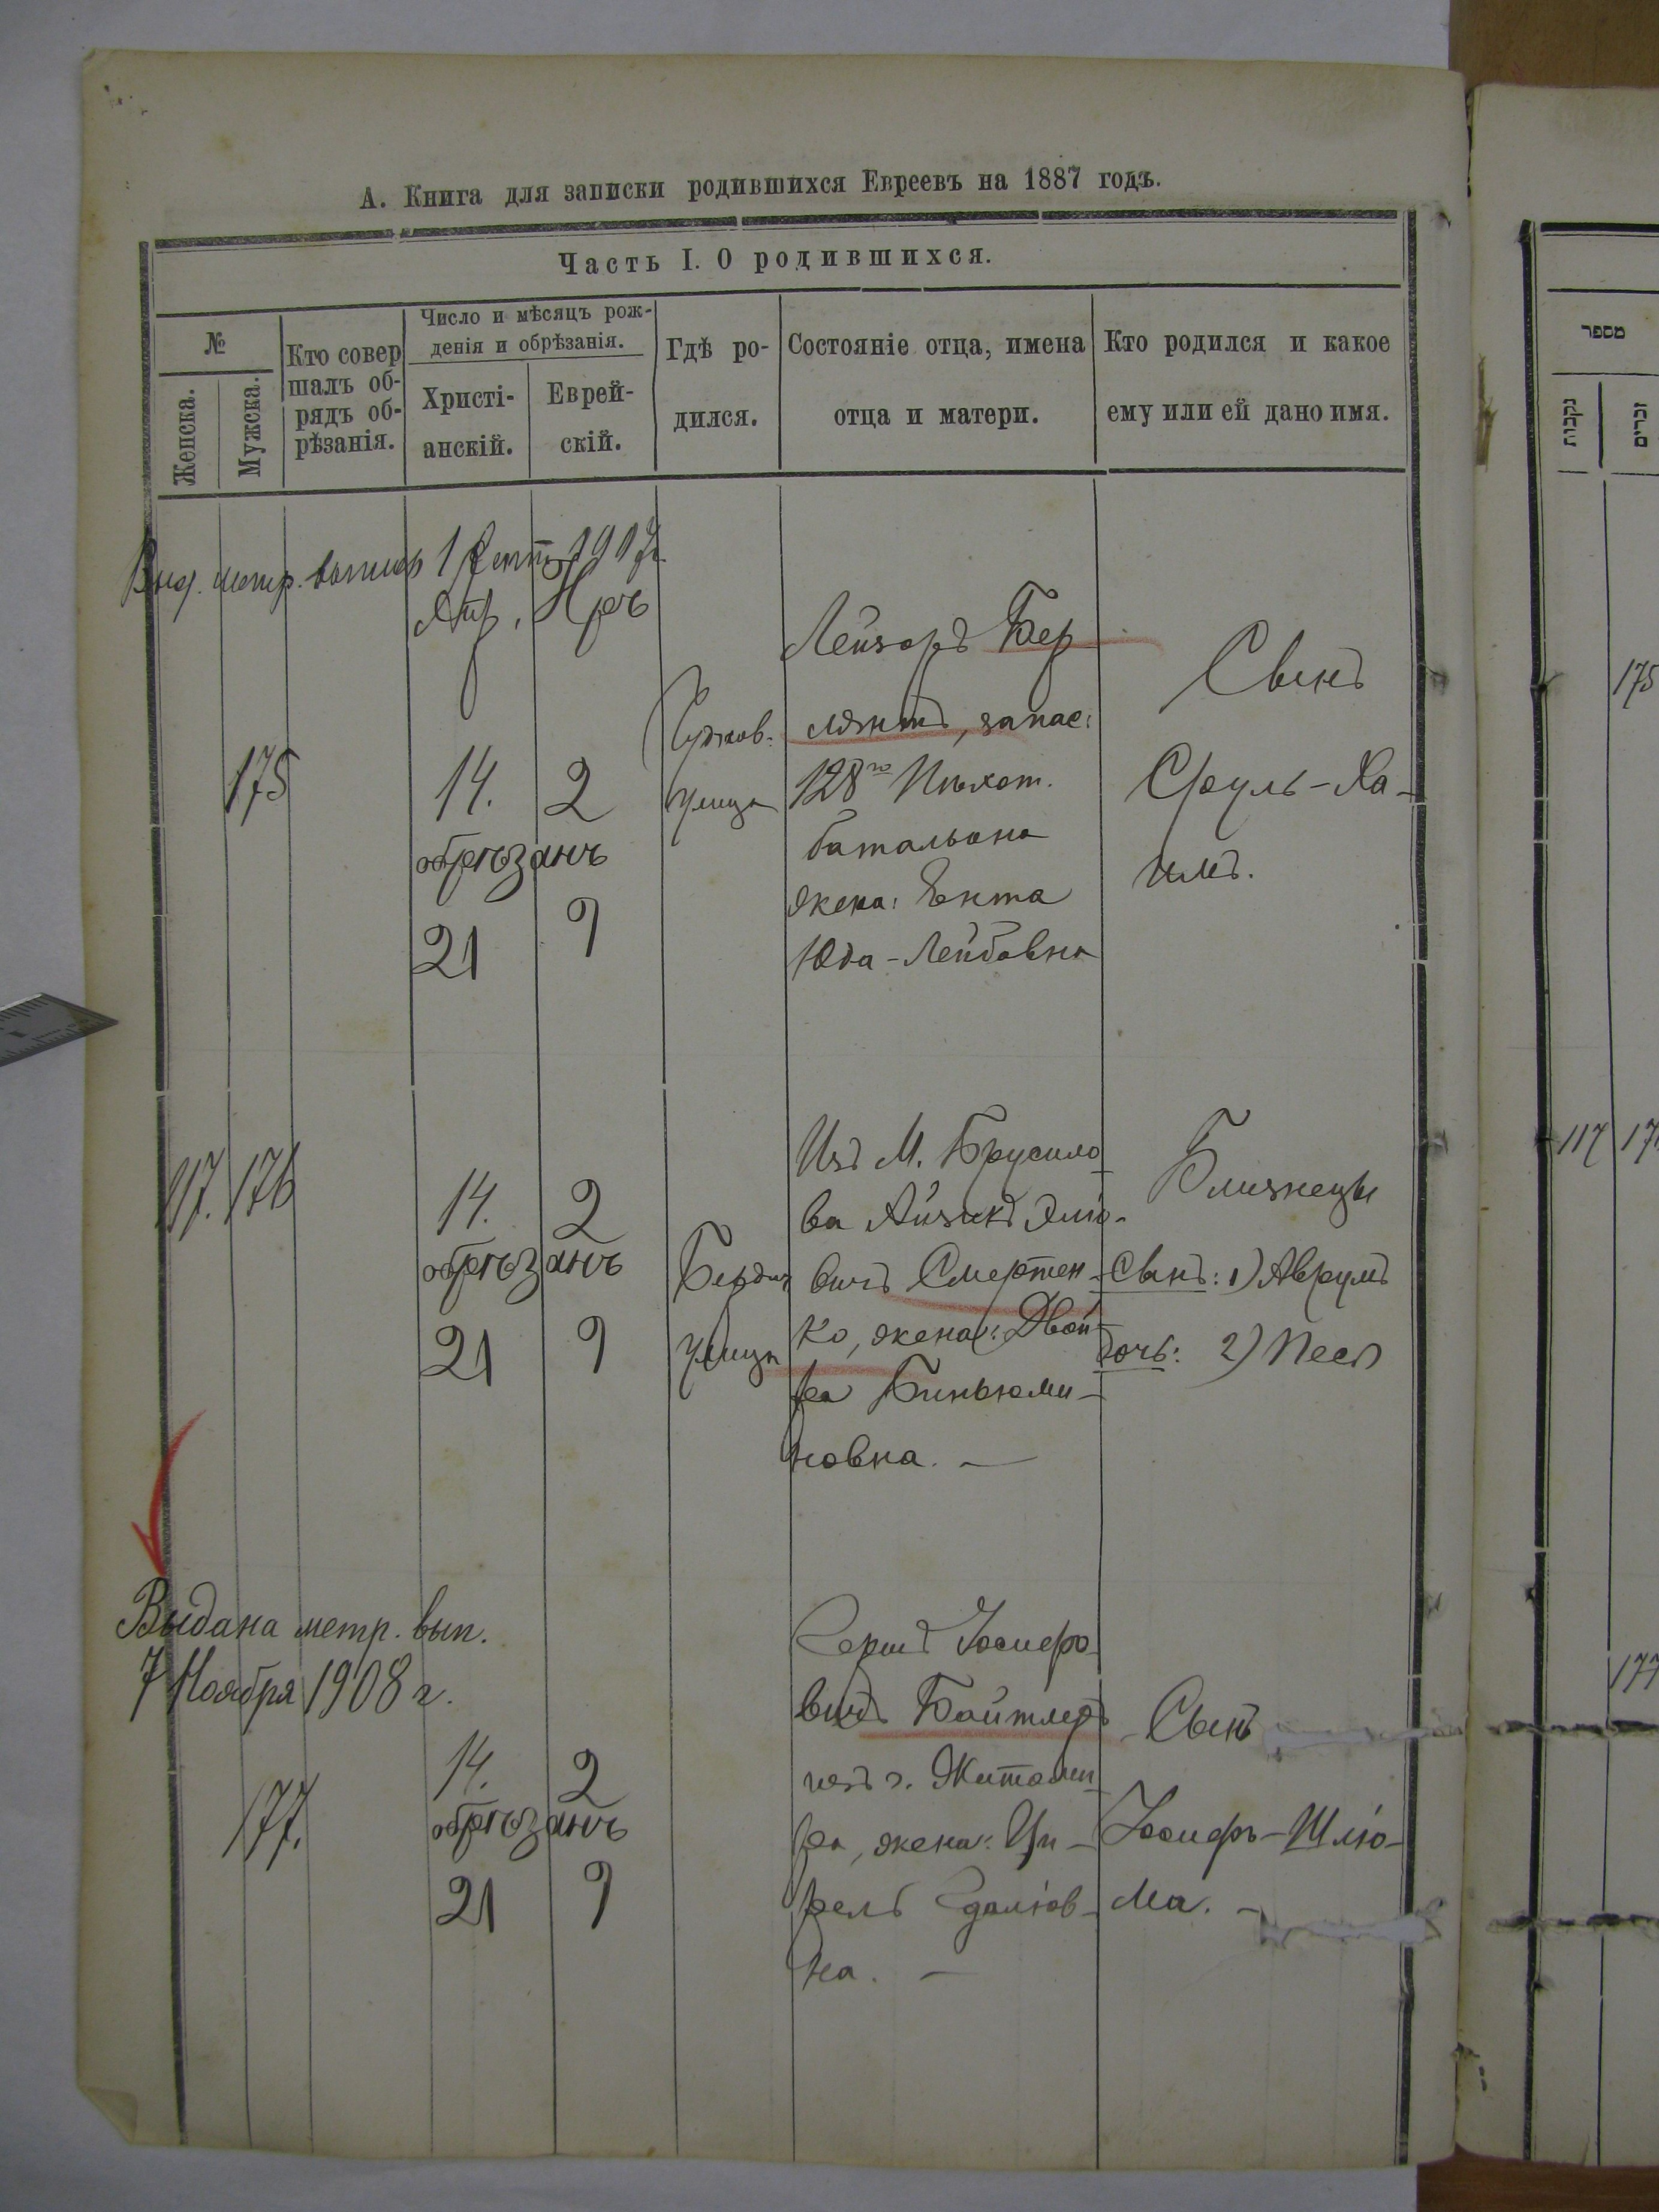 А. Книга для записки родившихся Евреевъ на 1887 годъ.
Часть I. О родившихся.
№
Женска.
Мужска.
Кто совер
шалъ об-
рядъ об-
рѣзанія.
Число и мѣсяцъ рож-
денія и обрѣзанія.
Христі-
анскій.
Еврей-
скій.
Гдѣ ро-
дился.
Состояніе отца, имена
отца и матери.
Кто родился и какое
ему или ей дано имя.
метр. 1
175
14.
2
обрѣзанъ
21
9
улица
Лейзоръ Бер
лянтъ, запас:
128го Пѣхот.
батальона
жена: Ента
Юда-Лейбовна
Сынъ
Сруль-Ха-
имъ.
117.
176
14.
2
обрѣзанъ
21
9
Бердич
улица
Изъ М. Брусило-
ва Айзикъ Элio-
вичъ Смертен-
ко, жена: Двой-
ра Биньюми-
новна. —
Близнецы
Сынъ: 1) Аврумъ
дочь: 2) Песя
Выдана метр. вып.
7 Ноября 1908 г.
177.
14.
2
обрѣзанъ
21
9
Гершъ Іосифо
вичъ Бойтлеръ
изъ г. Житоми-
ра, жена: Ци-
рель Гдаліов-
на. —
Сынъ
Іосифъ-Шлio-
ма. -
מספר
נקבות
זכרים
175
117
177